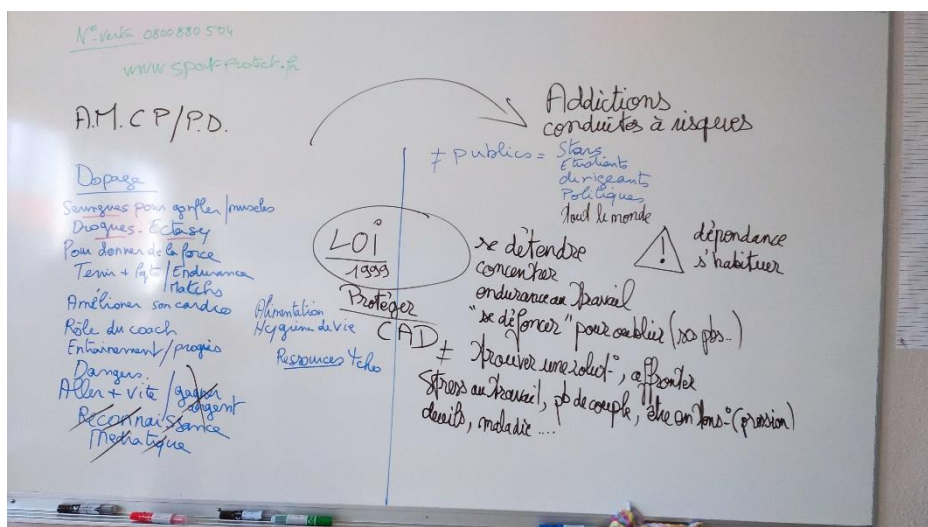 N° Vert 0800880504
www.sport-protect.fr
A.M.C P/P.D.
Dopage
Seringues pour gonfler/muscles
Drogues. Ectasy
Pour donner de la force
Tenir + lgts/Endurance
Matchs
Améliorer son cardio
Rôle du coach
Entrainement/progrès
Dangers.
Aller + vite/gagner
argent
Reconnaissance
Mediatique
LOi
1999
Protéger
CAD
Alimentation
Hygiène de vie
Ressources
Addictions
conduites à risques
≠ publics = Stars
Etudiants
dirigeants
Politiques
tout le monde
!
dépendance
s'habituer
se détendre
concentrer
endurance au travail
"se défoncer" pour oublier (ses pbs..)
≠ trouver une solut°, affronter
Stress au travail, pb de couple, être en tens° (pression)
deuils, maladie....